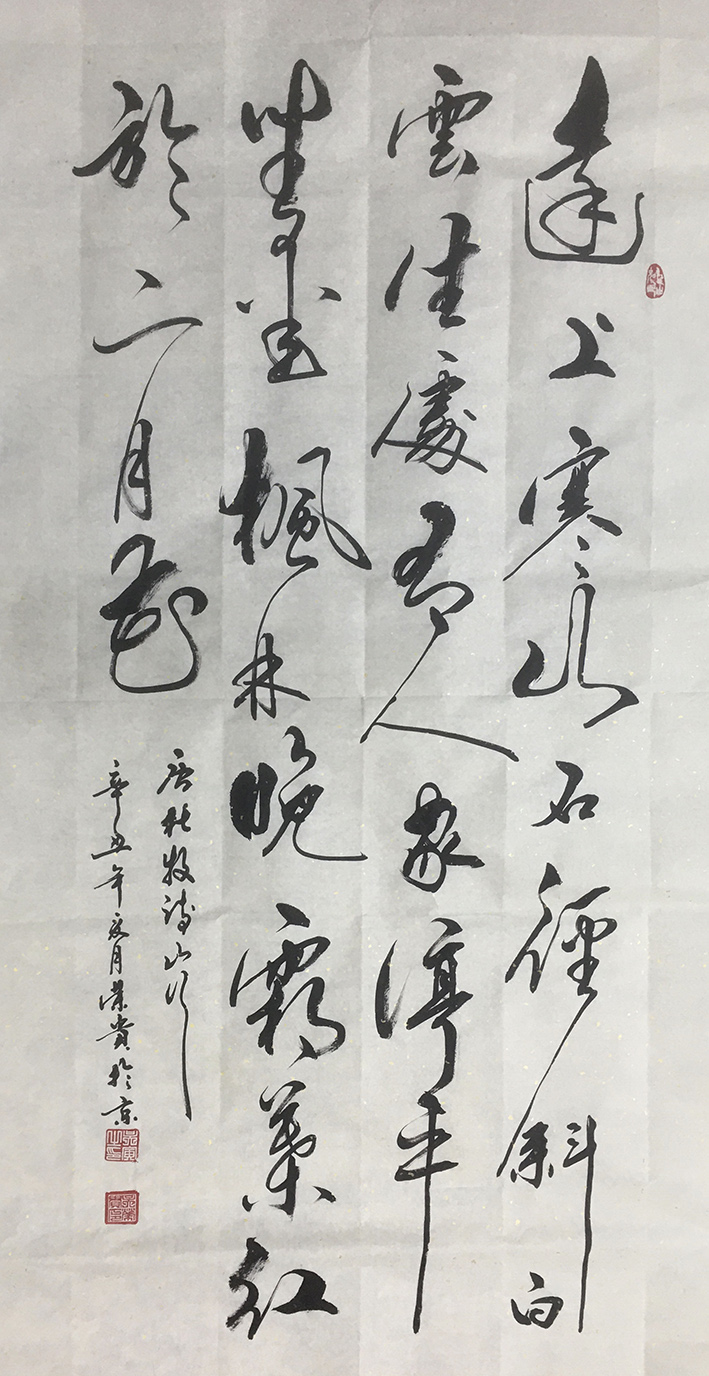 遠上寒山石徑斜白
雲生處有人家停車
坐愛楓林晚霜葉紅
於二月花
唐杜牧詩山行
辛丑年夏月榮貴於京